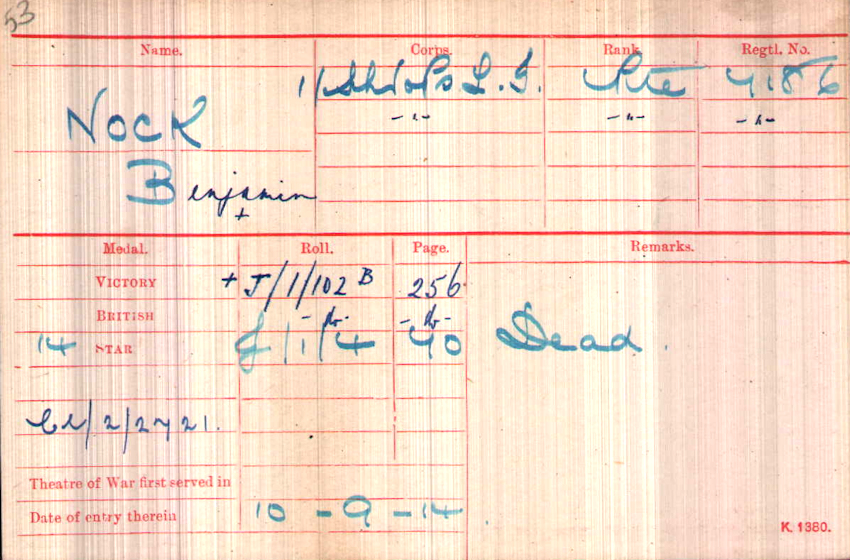 53
Name. Corps. Rank. Regtl. No.
1/Shrops L.I. Pte 7186
NOCK -"- -"- -"-
Benjamin
+
Medal. Roll. Page. Remarks.
VICTORY + J/1/102 B 256
BRITISH -do- -do-
14 STAR J/1/4 40 Dead.
CL/2/2721.
Theatre of War first served in
Date of entry therein 10-9-14
K. 1380.